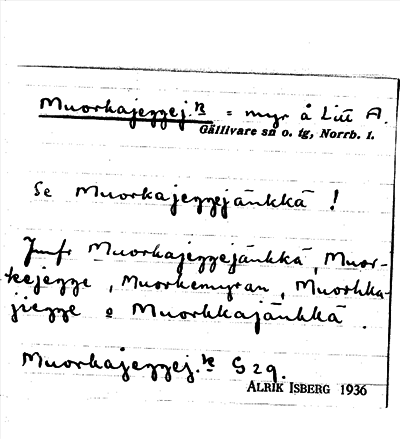 Muorkajeggej. = myr å Litt A.
Gällivare sn o. tg, Norrb. l.
Se Muorkajeggejänkkä !
Jmfr Muorkajeggejänkkä, Muor-
kejegge, Muorkemyran, Muorkka-
jiegge o Muorkkajänkkä.
Muorkajeggej. S 29.
ALRIK ISBERG 1936